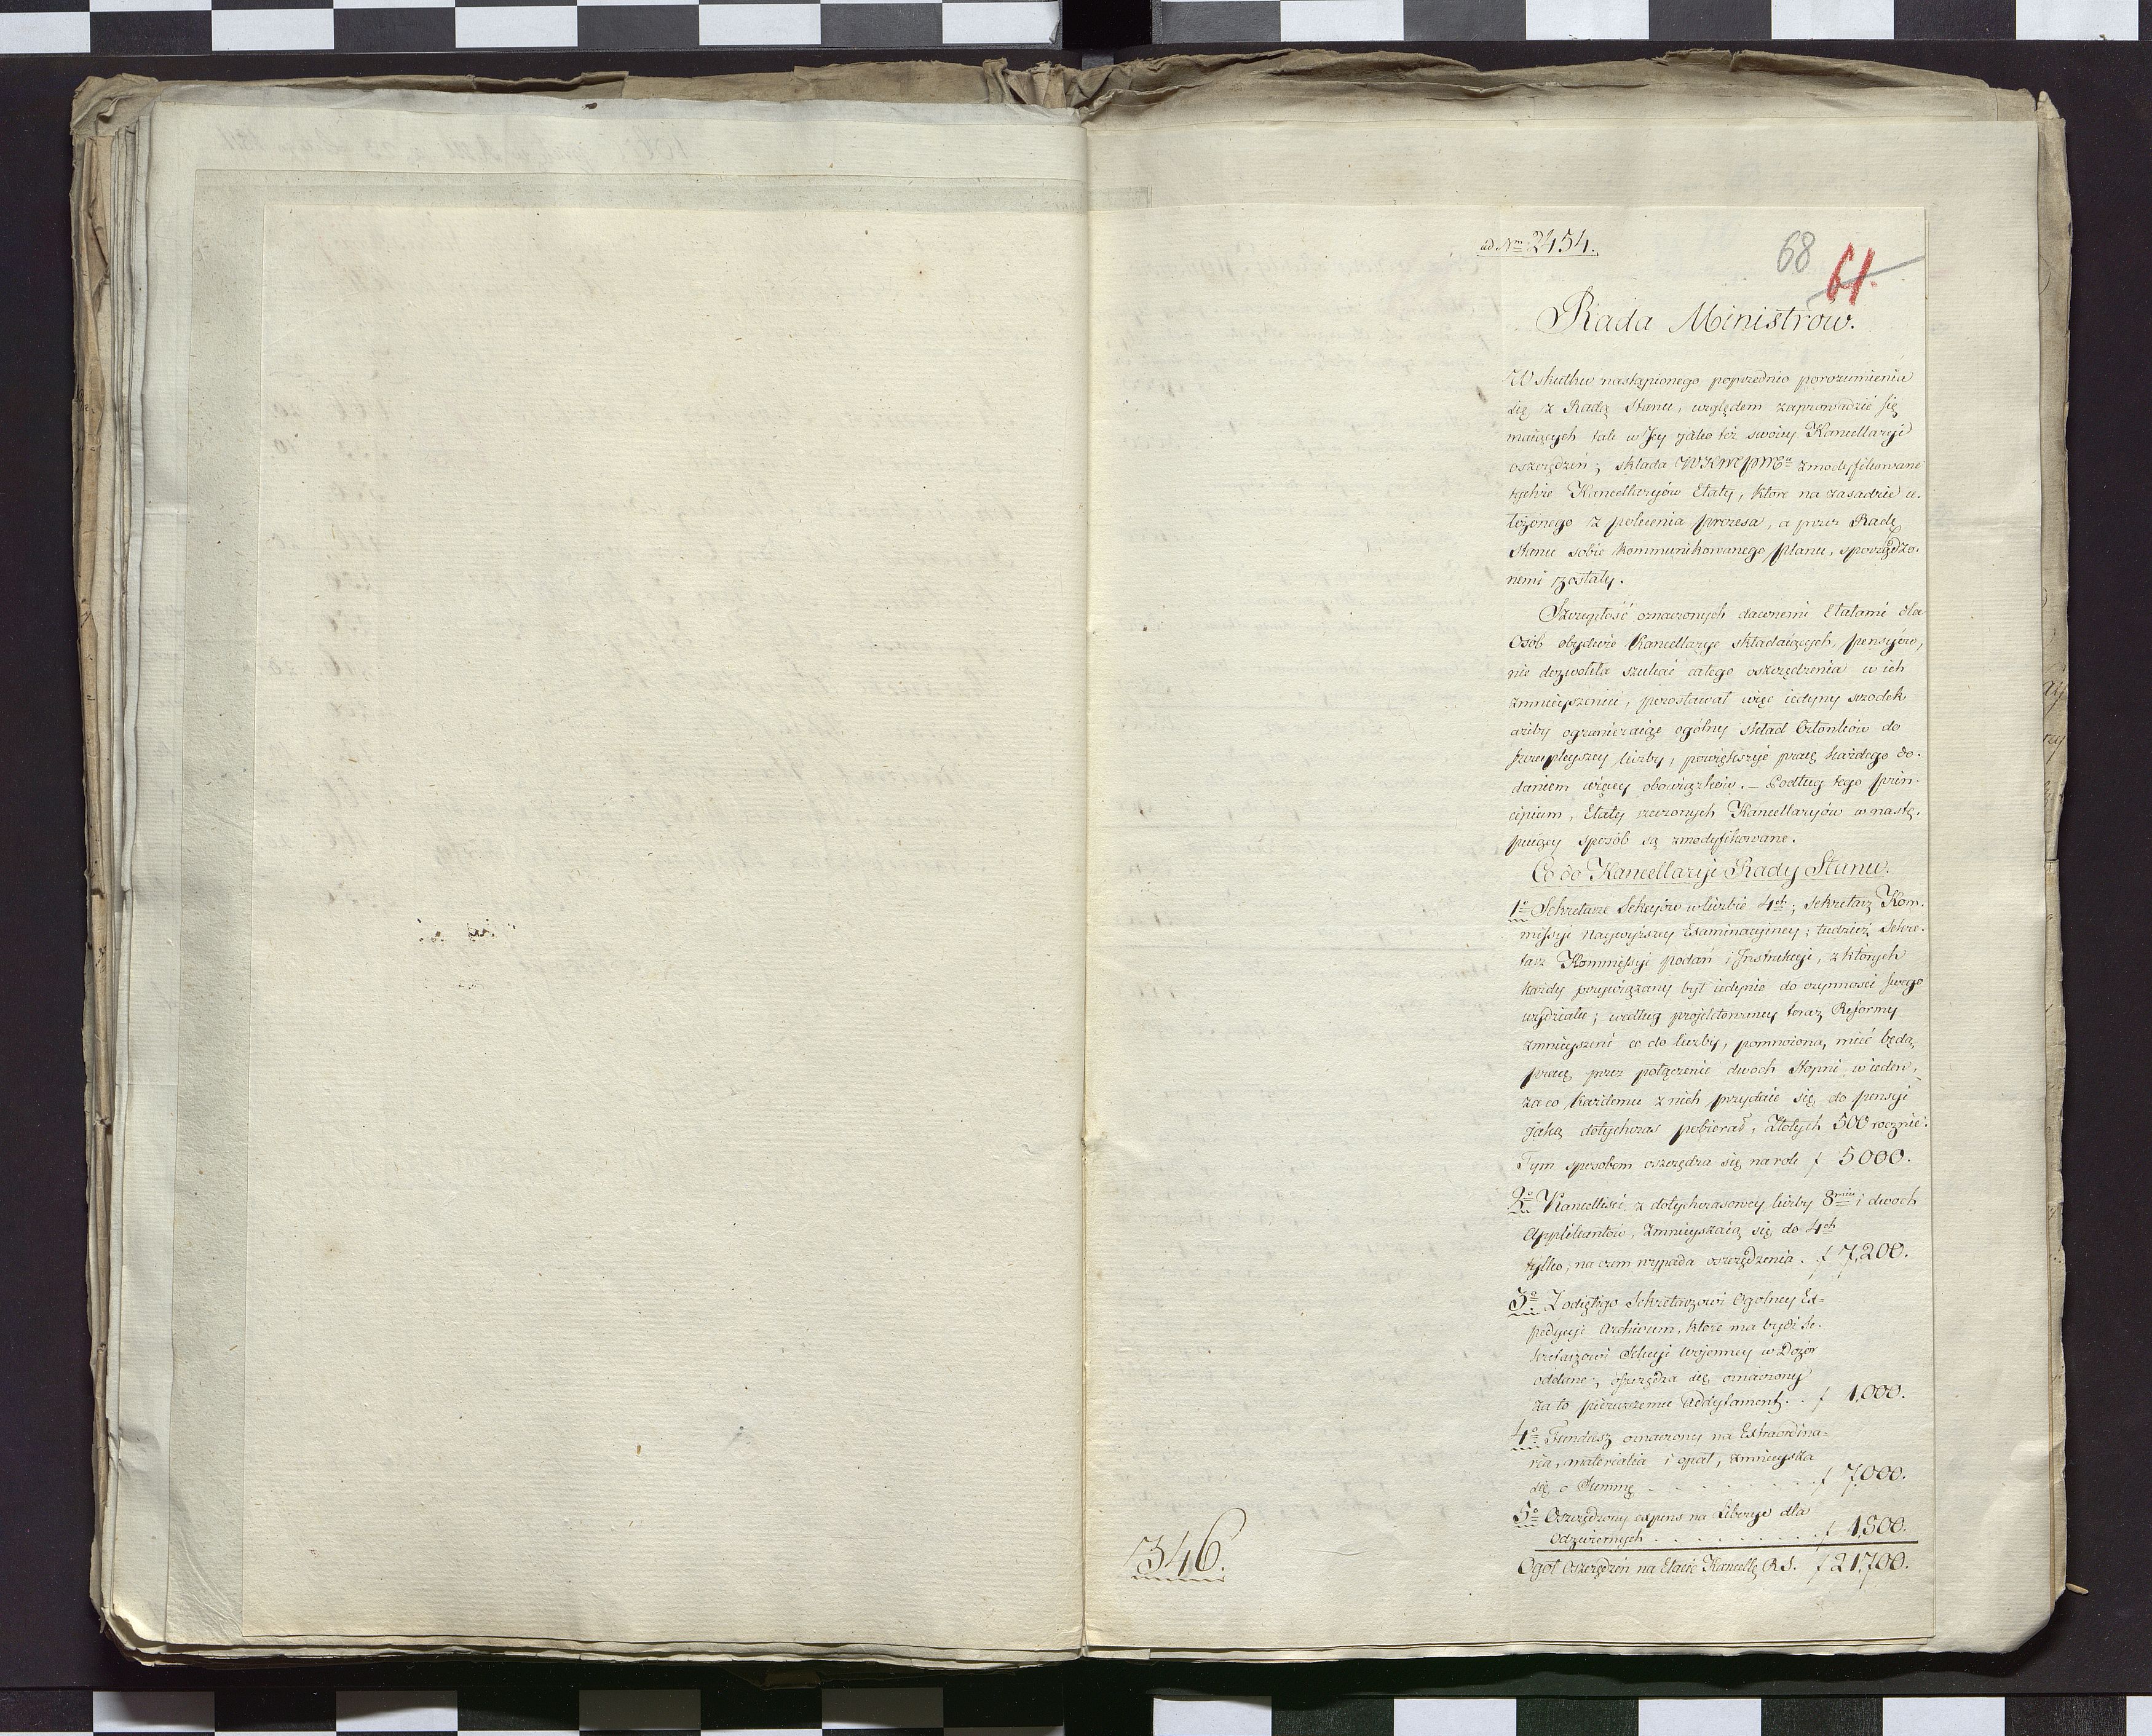 ad Nrm 2454.
68
61.
Rada Ministrow.
W skutku nastąpionego poprzednio porozumienia
się z Radą Stanu, względem zaprowadzić się
maiących tak w Jey jako też swoiey Kancellaryi
oszczędzeń; składa WKM PMCu zmodyfikowane
tychże Kancellaryiów Etaty, które na zasadzie u-
łożonego z polecenia prezesa, a przez Radę
Stanu sobie kommunikowanego planu, sporządzo-
nemi zostały.
Szczupłość oznaczonych dawnemi Etatami dla
Osób obydwie Kancellarye składaiących, pensyów,
nie dozwoliła szukać całego oszczędzenia w ich
zmnieyszeniu, pozostawał więc iedyny srzodek
ażeby ograniczaiąc ogólny skład Członków do
szczupleyszey liczby, powiększyć pracę każdego do-
daniem więcey obowiązków. – Podług tego prin-
cipium, Etaty rzeczonych Kancellaryiów w nastę-
puiący sposób są zmodyfikowane.
Co do Kancellaryi Rady Stanu.
1o Sekretarze Sekcyów w liczbie 4ch; Sekretarz Kom-
missyi Naywyższey Examinacyiney; tudzież Sekre-
tarz Kommissyi podań i Instrukcyi, z których
każdy przywiązany był iedynie do czynności swego
wydziału; według projektowaney teraz Reformy
zmnieyszeni co do liczby, pomnożoną mieć będą
pracę przez połączenie dwoch Stopni w ieden,
za co każdemu z nich przydaie się do pensyi
jaką dotychczas pobierał, Złotych 500 rocznie.
Tym sposobem oszczędza się na rok f 5000.
2o Kancellisci z dotychczasowey liczby 8miu i dwoch
Applikantów, zmnieyszaią się do 4ch
tylko; na czem wypada oszczędzenia . f 7,200.
3o Z odiętego Sekretarzowi Ogolney Ex-
pedycyi Archivum, które ma bydź Se-
kretarzowi Sekcyi Woienney w Dozór
oddane; oszczędza się oznaczony
za to pierwszemu Addytament. . f 1,000.
4o Fundusz oznaczony na Extraordina-
ria, materialia i opał, zmnieysza
się o Summę . . . . . . . f 7,000.
5o Oszczędzony expens na Liberye dla
Odzwiernych . . . . . . . . f 1,500.
Ogół Oszczędzeń na Etacie Kancell. R S. f 21,700.
346.